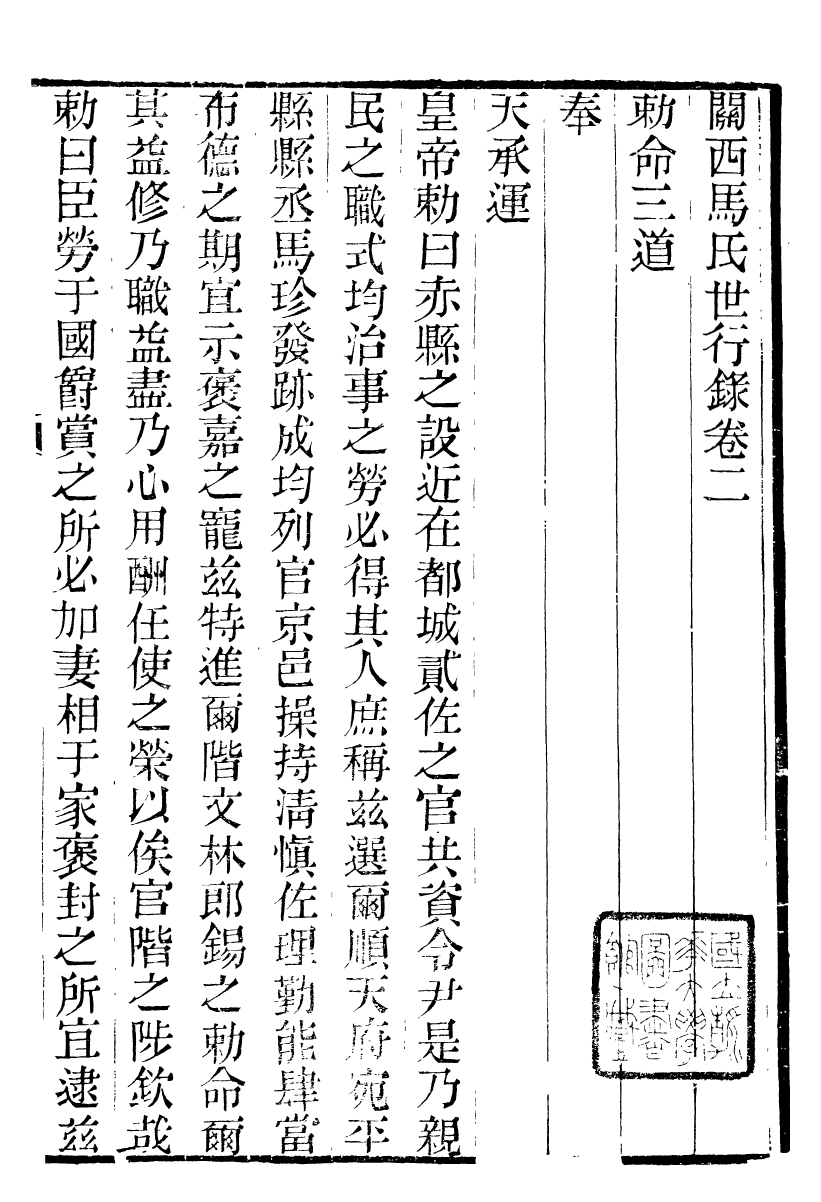 關西馬氏世行錄卷二
勅命三道
奉
天承運
皇帝勅曰赤縣之設近在都城貳佐之官共資令尹是乃親
民之職式均治事之勞必得其人庶稱兹選爾順天府宛平
縣縣丞馬珍發跡成均列官京邑操持清慎佐理勤能肆當
布德之期宜示褒嘉之寵兹特進爾階文林郎錫之勅命爾
其益修乃職益盡乃心用酬任使之榮以俟官階之陟欽哉
勅曰臣勞于國爵賞之所必加妻相于家褒封之所宜逮兹